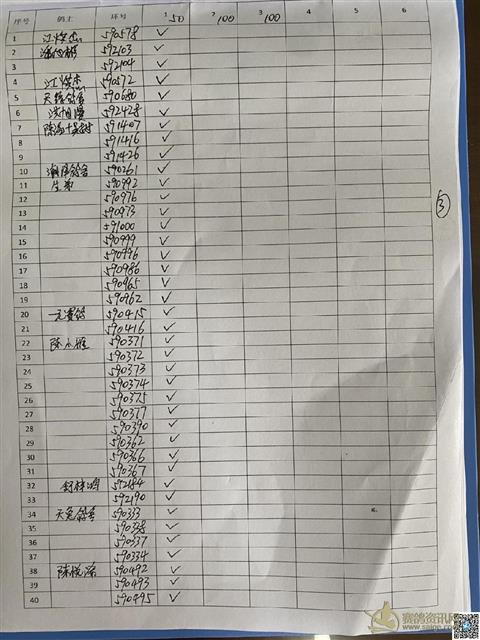 序号 鸽主 环号 1 50 2 100 3 100 4 5 6
1 江焕杰 590578 ✓
2 592103 ✓
3 592104 ✓
4 江焕杰 590572 ✓
5 590680 ✓
6 592428 ✓
7 591407 ✓
8 591416 ✓
9 591426 ✓
10 590261 ✓
11 590992 ✓
12 590976 ✓
13 590973 ✓
14 591000 ✓
15 590999 ✓
16 590996 ✓
17 590986 ✓
18 590965 ✓
19 590962 ✓
20 590415 ✓
21 590416 ✓
22 590371 ✓
23 590372 ✓
24 590373 ✓
25 590374 ✓
26 590375 ✓
27 590377 ✓
28 590390 ✓
29 590362 ✓
30 590366 ✓
31 590367 ✓
32 592184 ✓
33 592190 ✓
34 590333 ✓
35 590338 ✓
36 590337 ✓
37 590334 ✓
38 陈悦深 590492 ✓
39 590493 ✓
40 590495 ✓
③
赛鸽资讯网
www.saige.com